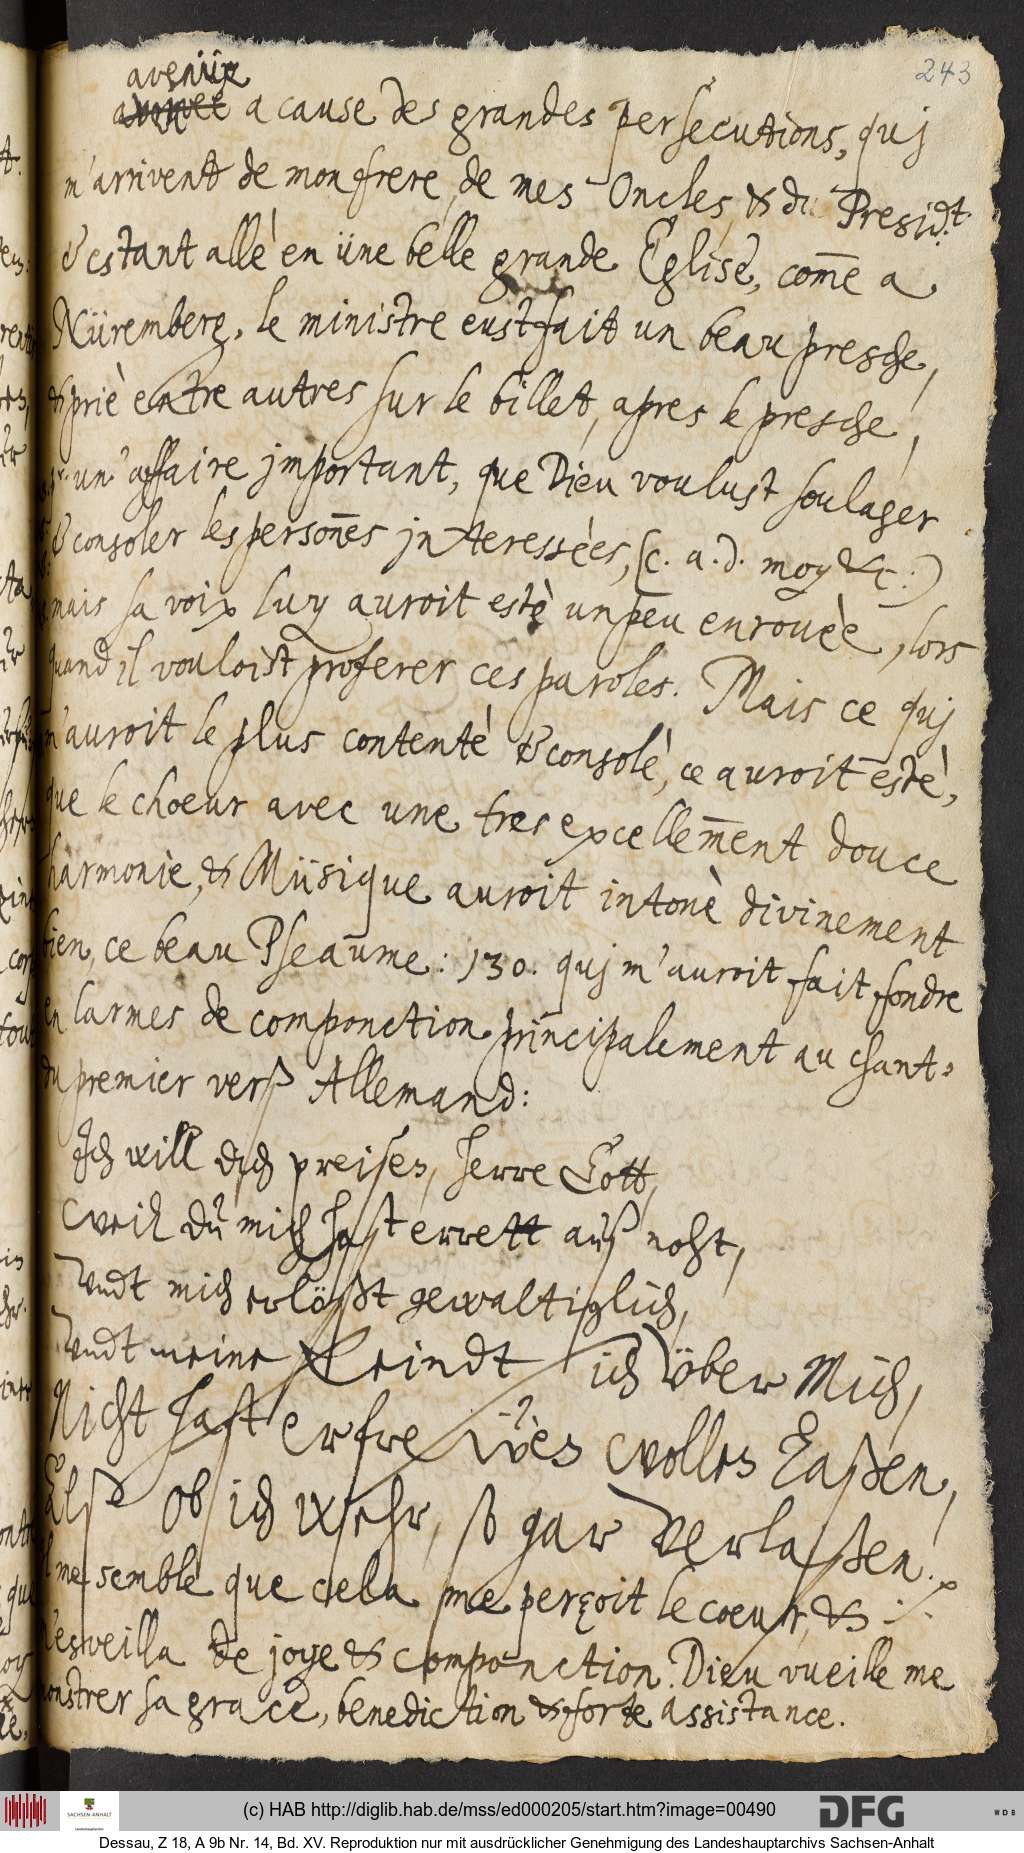 243
avenüe
a cause des grandes persecutions, quj
m'arrivent de mon frere, de mes Oncles, & du Presid.t
& estant allè en üne belle grande Eglise, com̄e a
Nüremberg, le ministre eust fait un beau presche,
& priè entre autres sur le billet, apres le presche,
un' affaire jmportant, que Dieu voulust soulager
& consoler les person̄es jnteressèes, (c. a. d. moy &c:)
mais sa voix luy auroit estè un peu enrouèe, lors
quand jl vouloist proferer ces paroles. Mais ce quj
m'auroit le plus contentè & consolè, ce auroit estè,
que le choeur avec une tres excellem̄ent douce
harmonie, & Müsique auroit intonè divinement
bien, ce beau Pseaume: 130. quj m'auroit fait fondre
en larmes de componction principalement au chant
du premier verß Allemand:
Ich will dich preisen, Herre Gott,
Weil dũ mich hast errett aũß noht,
Vndt mich erlößt gewaltiglich,
Vndt meine Feindt sich vber Mich,
Nicht hast erfrewen wollen Laßen,
Alß ob ich wehr, so gar Verlaßen.
Il me semble que cela me perçoit le coeur, & ./.
m'esveilla de joye & componction. Dieu vueille me
monstrer sa grace, benediction & forte assistance.
(c) HAB http://diglib.hab.de/mss/ed000205/start.htm?image=00490
SACHSEN-ANHALT
DFG
WDB
Dessau, Z 18, A 9b Nr. 14, Bd. XV. Reproduktion nur mit ausdrücklicher Genehmigung des Landeshauptarchivs Sachsen-Anhalt